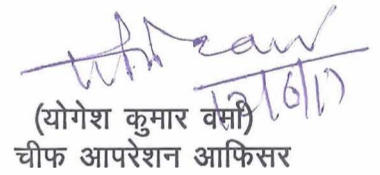 12/6/17
(योगेश कुमार वर्मा)
चीफ आपरेशन आफिसर